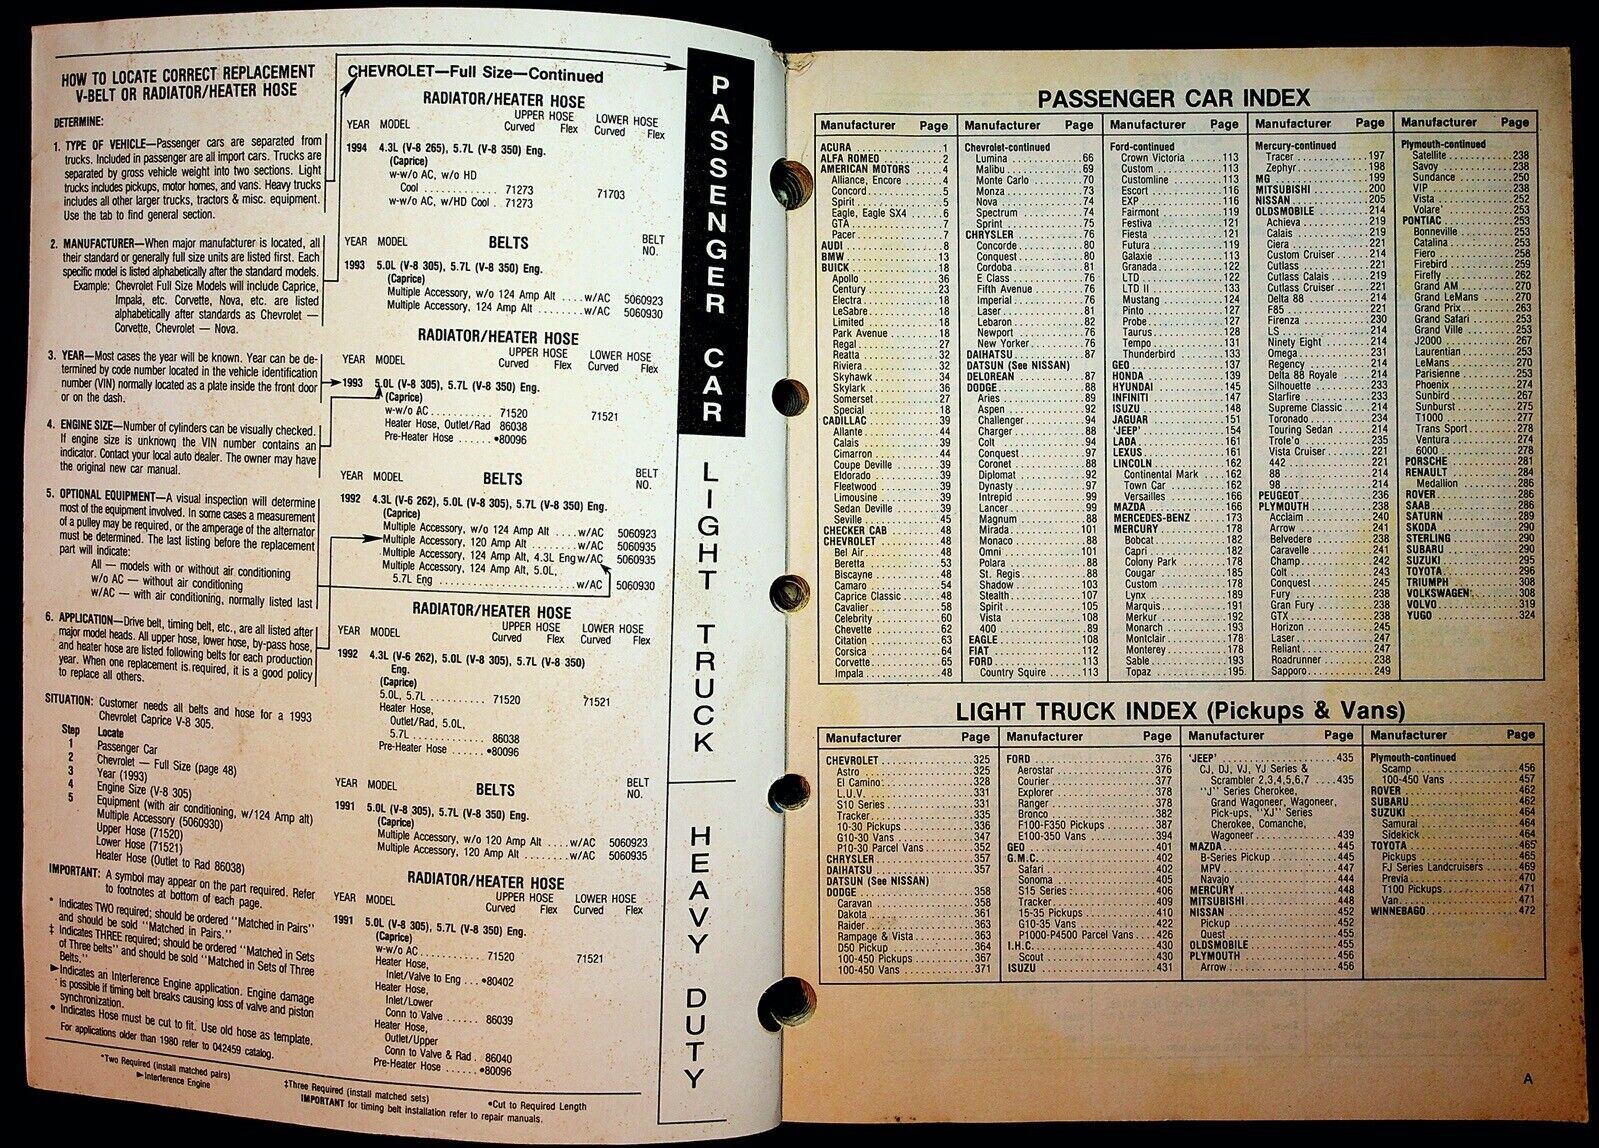 HOW TO LOCATE CORRECT REPLACEMENT
V-BELT OR RADIATOR/HEATER HOSE
DETERMINE:
1. TYPE OF VEHICLE—Passenger cars are separated from
trucks. Included in passenger are all import cars. Trucks are
separated by gross vehicle weight into two sections. Light
trucks includes pickups, motor homes, and vans. Heavy trucks
includes all other larger trucks, tractors & misc. equipment.
Use the tab to find general section.
2. MANUFACTURER—When major manufacturer is located, all
their standard or generally full size units are listed first. Each
specific model is listed alphabetically after the standard models.
Example: Chevrolet Full Size Models will include Caprice,
Impala, etc. Corvette, Nova, etc. are listed
alphabetically after standards as Chevrolet —
Corvette, Chevrolet — Nova.
3. YEAR—Most cases the year will be known. Year can be de-
termined by code number located in the vehicle identification
number (VIN) normally located as a plate inside the front door
or on the dash.
4. ENGINE SIZE—Number of cylinders can be visually checked.
If engine size is unknown the VIN number contains an
indicator. Contact your local auto dealer. The owner may have
the original new car manual.
5. OPTIONAL EQUIPMENT—A visual inspection will determine
most of the equipment involved. In some cases a measurement
of a pulley may be required, or the amperage of the alternator
must be determined. The last listing before the replacement
part will indicate:
All — models with or without air conditioning
w/o AC — without air conditioning
w/AC — with air conditioning, normally listed last
6. APPLICATION—Drive belt, timing belt, etc., are all listed after
major model heads. All upper hose, lower hose, by-pass hose,
and heater hose are listed following belts for each production
year. When one replacement is required, it is a good policy
to replace all others.
SITUATION: Customer needs all belts and hose for a 1993
Chevrolet Caprice V-8 305.
Step Locate
1 Passenger Car
2 Chevrolet — Full Size (page 48)
3 Year (1993)
4 Engine Size (V-8 305)
5 Equipment (with air conditioning, w/124 Amp alt)
Multiple Accessory (5060930)
Upper Hose (71520)
Lower Hose (71521)
Heater Hose (Outlet to Rad 86038)
IMPORTANT: A symbol may appear on the part required. Refer
to footnotes at bottom of each page.
* Indicates TWO required; should be ordered "Matched in Pairs"
and should be sold "Matched in Pairs."
‡ Indicates THREE required; should be ordered "Matched in Sets
of Three belts" and should be sold "Matched in Sets of Three
Belts."
►Indicates an Interference Engine application. Engine damage
is possible if timing belt breaks causing loss of valve and piston
synchronization.
• Indicates Hose must be cut to fit. Use old hose as template.
For applications older than 1980 refer to 042459 catalog.
CHEVROLET—Full Size—Continued
RADIATOR/HEATER HOSE
UPPER HOSE LOWER HOSE
YEAR MODEL Curved Flex Curved Flex
1994 4.3L (V-8 265), 5.7L (V-8 350) Eng.
(Caprice)
w-w/o AC, w/o HD
Cool 71273 71703
w-w/o AC, w/HD Cool 71273
YEAR MODEL BELTS BELT NO.
1993 5.0L (V-8 305), 5.7L (V-8 350) Eng.
(Caprice)
Multiple Accessory, w/o 124 Amp Alt w/AC 5060923
Multiple Accessory, 124 Amp Alt w/AC 5060930
RADIATOR/HEATER HOSE
UPPER HOSE LOWER HOSE
YEAR MODEL Curved Flex Curved Flex
1993 5.0L (V-8 305), 5.7L (V-8 350) Eng.
(Caprice)
w-w/o AC 71520 71521
Heater Hose, Outlet/Rad 86038
Pre-Heater Hose •80096
YEAR MODEL BELTS BELT NO.
1992 4.3L (V-6 262), 5.0L (V-8 305), 5.7L (V-8 350) Eng.
(Caprice)
Multiple Accessory, w/o 124 Amp Alt w/AC 5060923
Multiple Accessory, 120 Amp Alt w/AC 5060935
Multiple Accessory, 124 Amp Alt, 4.3L Eng w/AC 5060935
Multiple Accessory, 124 Amp Alt, 5.0L,
5.7L Eng w/AC 5060930
RADIATOR/HEATER HOSE
UPPER HOSE LOWER HOSE
YEAR MODEL Curved Flex Curved Flex
1992 4.3L (V-6 262), 5.0L (V-8 305), 5.7L (V-8 350)
Eng.
(Caprice)
5.0L, 5.7L 71520 71521
Heater Hose,
Outlet/Rad, 5.0L,
5.7L 86038
Pre-Heater Hose •80096
YEAR MODEL BELTS BELT NO.
1991 5.0L (V-8 305), 5.7L (V-8 350) Eng.
(Caprice)
Multiple Accessory, w/o 120 Amp Alt w/AC 5060923
Multiple Accessory, 120 Amp Alt w/AC 5060935
RADIATOR/HEATER HOSE
UPPER HOSE LOWER HOSE
YEAR MODEL Curved Flex Curved Flex
1991 5.0L (V-8 305), 5.7L (V-8 350) Eng.
(Caprice)
w-w/o AC 71520 71521
Heater Hose,
Inlet/Valve to Eng •80402
Heater Hose,
Inlet/Lower
Conn to Valve 86039
Heater Hose,
Outlet/Upper
Conn to Valve & Rad 86040
Pre-Heater Hose •80096
*Two Required (install matched pairs)
►Interference Engine
‡Three Required (install matched sets)
•Cut to Required Length
IMPORTANT for timing belt installation refer to repair manuals.
PASSENGER CAR
LIGHT TRUCK
HEAVY DUTY
PASSENGER CAR INDEX
Manufacturer Page
ACURA 1
ALFA ROMEO 2
AMERICAN MOTORS 4
Alliance, Encore 4
Concord 5
Spirit 5
Eagle, Eagle SX4 6
GTA 7
Pacer 7
AUDI 8
BMW 13
BUICK 18
Apollo 36
Century 23
Electra 18
LeSabre 18
Limited 18
Park Avenue 18
Regal 27
Reatta 32
Riviera 32
Skyhawk 34
Skylark 36
Somerset 27
Special 18
CADILLAC 39
Allante 44
Calais 39
Cimarron 44
Coupe Deville 39
Eldorado 39
Fleetwood 39
Limousine 39
Sedan Deville 39
Seville 45
CHECKER CAB 48
CHEVROLET 48
Bel Air 48
Beretta 53
Biscayne 48
Camaro 54
Caprice Classic 48
Cavalier 58
Celebrity 60
Chevette 62
Citation 63
Corsica 64
Corvette 65
Impala 48
Manufacturer Page
Chevrolet-continued
Lumina 66
Malibu 69
Monte Carlo 70
Monza 73
Nova 74
Spectrum 74
Sprint 75
CHRYSLER 76
Concorde 80
Conquest 80
Cordoba 81
E Class 76
Fifth Avenue 76
Imperial 76
Laser 81
Lebaron 82
Newport 76
New Yorker 76
DAIHATSU 87
DATSUN (See NISSAN)
DELOREAN 87
DODGE 88
Aries 89
Aspen 92
Challenger 94
Charger 88
Colt 94
Conquest 97
Coronet 88
Diplomat 92
Dynasty 97
Intrepid 99
Lancer 99
Magnum 88
Mirada 101
Monaco 88
Omni 101
Polara 88
St. Regis 88
Shadow 103
Stealth 107
Spirit 105
Vista 108
400 89
EAGLE 108
FIAT 112
FORD 113
Country Squire 113
Manufacturer Page
Ford-continued
Crown Victoria 113
Custom 113
Customline 113
Escort 116
EXP 116
Fairmont 119
Festiva 121
Fiesta 121
Futura 119
Galaxie 113
Granada 122
LTD 122
LTD II 133
Mustang 124
Pinto 127
Probe 127
Taurus 128
Tempo 131
Thunderbird 133
GEO 137
HONDA 139
HYUNDAI 145
INFINITI 147
ISUZU 148
JAGUAR 151
'JEEP' 154
LADA 161
LEXUS 161
LINCOLN 162
Continental Mark 162
Town Car 162
Versailles 166
MAZDA 166
MERCEDES-BENZ 173
MERCURY 178
Bobcat 182
Capri 182
Colony Park 178
Cougar 185
Custom 178
Lynx 189
Marquis 191
Merkur 192
Monarch 193
Montclair 178
Monterey 178
Sable 193
Topaz 195
Manufacturer Page
Mercury-continued
Tracer 197
Zephyr 198
MG 199
MITSUBISHI 200
NISSAN 205
OLDSMOBILE 214
Achieva 219
Calais 219
Ciera 221
Custom Cruiser 214
Cutlass 221
Cutlass Calais 219
Cutlass Cruiser 221
Delta 88 214
F85 221
Firenza 230
LS 214
Ninety Eight 214
Omega 231
Regency 214
Delta 88 Royale 214
Silhouette 233
Starfire 233
Supreme Classic 214
Toronado 234
Touring Sedan 214
Trofe'o 235
Vista Cruiser 221
442 221
88 214
98 214
PEUGEOT 236
PLYMOUTH 238
Acclaim 240
Arrow 241
Belvedere 238
Caravelle 241
Champ 242
Colt 243
Conquest 245
Fury 238
Gran Fury 238
GTX 238
Horizon 245
Laser 247
Reliant 247
Roadrunner 238
Sapporo 249
Manufacturer Page
Plymouth-continued
Satellite 238
Savoy 238
Sundance 250
VIP 238
Vista 252
Volare' 253
PONTIAC 253
Bonneville 253
Catalina 253
Fiero 258
Firebird 259
Firefly 262
Grand AM 270
Grand LeMans 270
Grand Prix 263
Grand Safari 253
Grand Ville 253
J2000 267
Laurentian 253
LeMans 270
Parisienne 253
Phoenix 274
Sunbird 267
Sunburst 275
T1000 277
Trans Sport 278
Ventura 274
6000 278
PORSCHE 281
RENAULT 284
Medallion 286
ROVER 286
SAAB 286
SATURN 289
SKODA 290
STERLING 290
SUBARU 290
SUZUKI 295
TOYOTA 296
TRIUMPH 308
VOLKSWAGEN 308
VOLVO 319
YUGO 324
LIGHT TRUCK INDEX (Pickups & Vans)
Manufacturer Page
CHEVROLET 325
Astro 325
El Camino 328
L.U.V. 331
S10 Series 331
Tracker 335
10-30 Pickups 336
G10-30 Vans 347
P10-30 Parcel Vans 352
CHRYSLER 357
DAIHATSU 357
DATSUN (See NISSAN)
DODGE 358
Caravan 358
Dakota 361
Raider 363
Rampage & Vista 363
D50 Pickup 364
100-450 Pickups 367
100-450 Vans 371
Manufacturer Page
FORD 376
Aerostar 376
Courier 377
Explorer 378
Ranger 378
Bronco 382
F100-F350 Pickups 387
E100-350 Vans 394
GEO 401
G.M.C. 402
Safari 402
Sonoma 405
S15 Series 406
Tracker 409
15-35 Pickups 410
G10-35 Vans 422
P1000-P4500 Parcel Vans 426
I.H.C. 430
Scout 430
ISUZU 431
Manufacturer Page
'JEEP' 435
CJ, DJ, VJ, YJ Series &
Scrambler 2,3,4,5,6,7 435
"J" Series Cherokee,
Grand Wagoneer, Wagoneer,
Pick-ups, "XJ" Series
Cherokee, Comanche,
Wagoneer 439
MAZDA 445
B-Series Pickup 445
MPV 447
Navajo 444
MERCURY 448
MITSUBISHI 448
NISSAN 452
Pickup 452
Quest 455
OLDSMOBILE 455
PLYMOUTH 456
Arrow 456
Manufacturer Page
Plymouth-continued
Scamp 456
100-450 Vans 457
ROVER 462
SUBARU 462
SUZUKI 464
Samurai 464
Sidekick 464
TOYOTA 465
Pickups 465
FJ Series Landcruisers 469
Previa 470
T100 Pickups 471
Van 471
WINNEBAGO 472
A